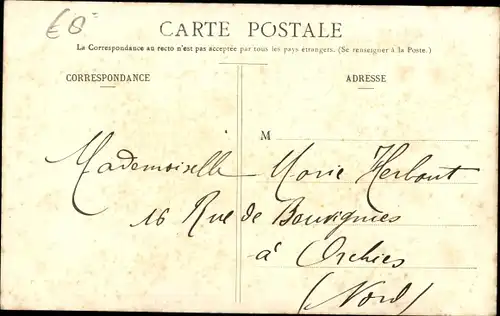 €8
CARTE POSTALE
La Correspondance au recto n'est pas acceptée par tous les pays étrangers. (Se renseigner à la Poste.)
CORRESPONDANCE
ADRESSE
M
Mademoiselle Marie Herbaut
16 Rue de Bouvignies
à Orchies
(Nord)